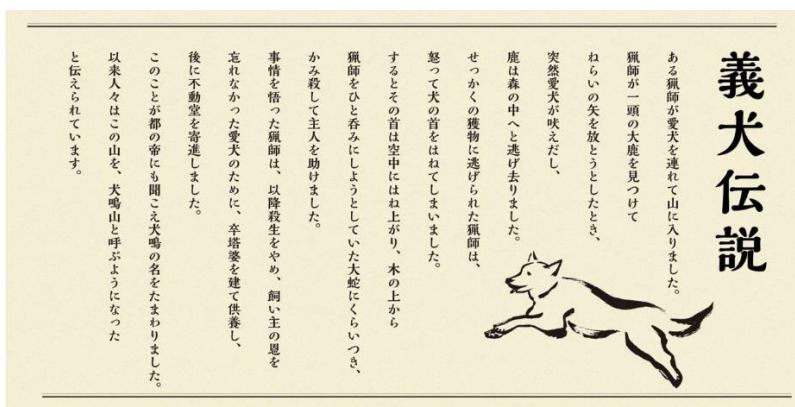 義犬伝説
ある猟師が愛犬を連れて山に入りました。
猟師が一頭の大鹿を見つけて
ねらいの矢を放とうとしたとき、
突然愛犬が吠えだし、
鹿は森の中へと逃げ去りました。
せっかくの獲物に逃げられた猟師は、
怒って犬の首をはねてしまいました。
するとその首は空中にはね上がり、木の上から
猟師をひと呑みにしようとしていた大蛇にくらいつき、
かみ殺して主人を助けました。
事情を悟った猟師は、以降殺生をやめ、飼い主の恩を
忘れなかった愛犬のために、卒塔婆を建て供養し、
後に不動堂を寄進しました。
このことが都の帝にも聞こえ犬鳴の名をたまわりました。
以来人々はこの山を、犬鳴山と呼ぶようになった
と伝えられています。